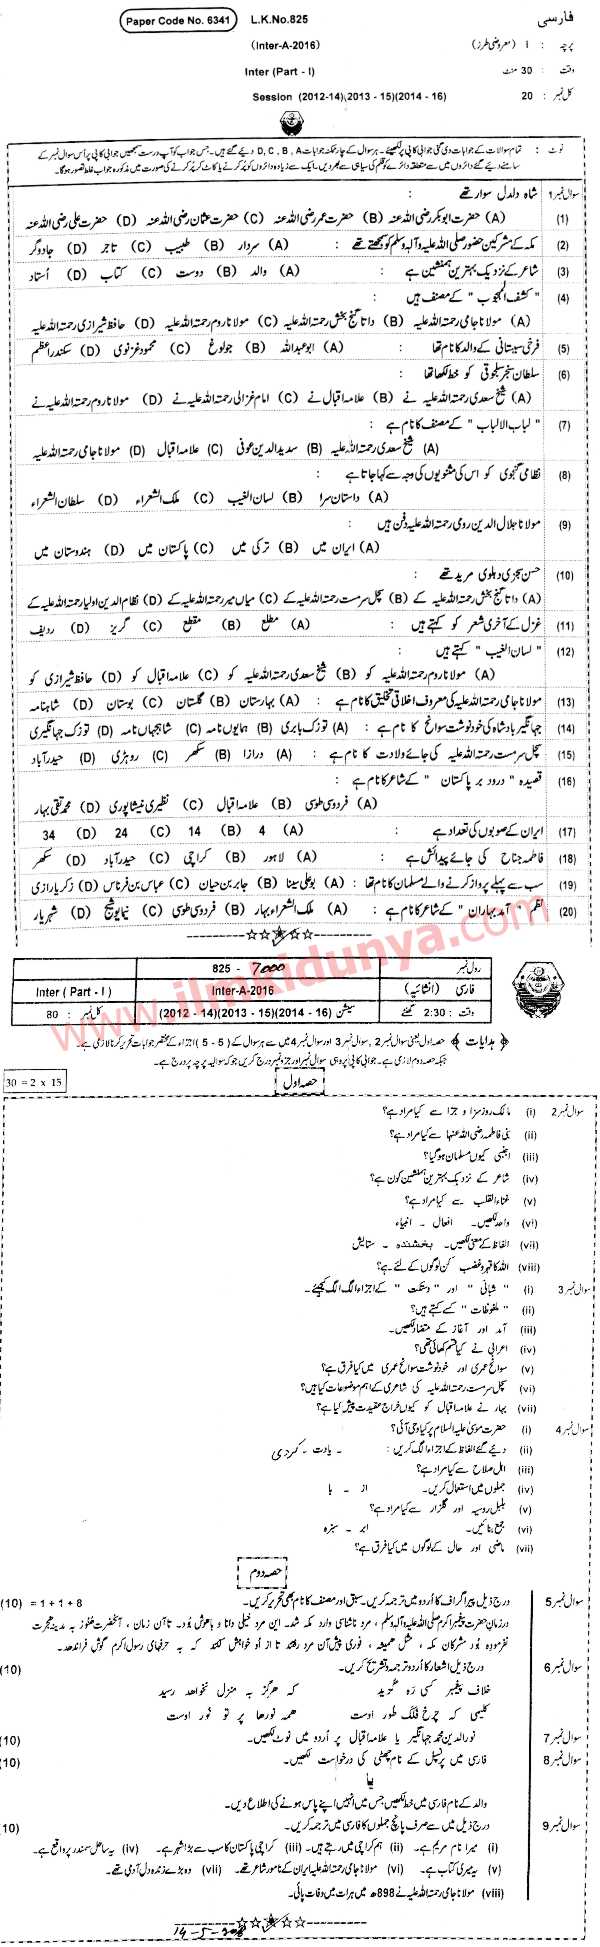 Paper Code No. 6341 L.K.No.825 فارسی
(Inter-A-2016) پرچہ : I (معروضی طرز)
Inter (Part - I) وقت : 30 منٹ
Session (2012-14)(2013 - 15)(2014 - 16) کل نمبر : 20
نوٹ : تمام سوالات کے جوابات دی گئی جوابی کاپی پر لکھیئے۔ ہر سوال کے چار ممکنہ جوابات D, C, B, A دیے گئے ہیں۔ جس جواب کو آپ درست سمجھیں جوابی کاپی پر اُس سوال نمبر کے
سامنے دیئے گئے دائروں میں سے متعلقہ دائرے کو قلم کی سیاہی سے بھر دیں۔ ایک سے زیادہ دائروں کو پُر کرنے یا کاٹ کر پُر کرنے کی صورت میں مذکورہ جواب غلط تصور ہوگا۔
سوال نمبر 1 شاہ دلدل سوار تھے
(1) (A) حضرت ابوبکر رضی اللہ عنہ (B) حضرت عمر رضی اللہ عنہ (C) حضرت عثمان رضی اللہ عنہ (D) حضرت علی رضی اللہ عنہ
(2) مکہ کے مشرکین حضور صلی اللہ علیہ وآلہ وسلم کو سمجھتے تھے : (A) سردار (B) طبیب (C) تاجر (D) جادوگر
(3) شاعر کے نزدیک بہترین ہمنشین ہے : (A) والد (B) دوست (C) کتاب (D) اُستاد
(4) "کشف المحجوب" کے مصنف ہیں :
(A) مولانا جامی رحمتہ اللہ علیہ (B) داتا گنج بخش رحمتہ اللہ علیہ (C) مولانا روم رحمتہ اللہ علیہ (D) حافظ شیرازی رحمتہ اللہ علیہ
(5) فرخی سیستانی کے والد کا نام تھا : (A) ابو عبداللہ (B) جولوغ (C) محمود غزنوی (D) سکندر اعظم
(6) سلطان سنجر سلجوقی کو خط لکھا تھا :
(A) شیخ سعدی رحمتہ اللہ علیہ نے (B) علامہ اقبال نے (C) امام غزالی رحمتہ اللہ علیہ نے (D) مولانا روم رحمتہ اللہ علیہ نے
(7) "لباب الالباب" کے مصنف کا نام ہے :
(A) شیخ سعدی رحمتہ اللہ علیہ (B) سدید الدین عوفی (C) علامہ اقبال (D) مولانا جامی رحمتہ اللہ علیہ
(8) نظامی گنجوی کو اس کی مثنویوں کی وجہ سے کہا جاتا ہے :
(A) داستان سرا (B) لسان الغیب (C) ملک الشعراء (D) سلطان الشعراء
(9) مولانا جلال الدین رومی رحمتہ اللہ علیہ دفن ہیں :
(A) ایران میں (B) ترکی میں (C) پاکستان میں (D) ہندوستان میں
(10) حسن سجزی دہلوی مرید تھے :
(A) داتا گنج بخش رحمتہ اللہ علیہ کے (B) سچل سرمست رحمتہ اللہ علیہ کے (C) میاں میر رحمتہ اللہ علیہ کے (D) نظام الدین اولیا رحمتہ اللہ علیہ کے
(11) غزل کے آخری شعر کو کہتے ہیں : (A) مطلع (B) مقطع (C) گریز (D) ردیف
(12) "لسان الغیب" کہتے ہیں :
(A) مولانا روم رحمتہ اللہ علیہ کو (B) شیخ سعدی رحمتہ اللہ علیہ کو (C) علامہ اقبال کو (D) حافظ شیرازی کو
(13) مولانا جامی رحمتہ اللہ علیہ کی معروف اخلاقی تخلیق کا نام ہے : (A) بہارستان (B) گلستان (C) بوستان (D) شاہنامہ
(14) جہانگیر بادشاہ کی خودنوشت سوانح کا نام ہے : (A) توزک بابری (B) ہمایوں نامہ (C) شاہجہاں نامہ (D) توزک جہانگیری
(15) سچل سرمست رحمتہ اللہ علیہ کی جائے ولادت کا نام ہے : (A) درازا (B) سکھر (C) روہڑی (D) حیدرآباد
(16) قصیدہ "درود بر پاکستان" کے شاعر کا نام ہے :
(A) فردوسی طوسی (B) علامہ اقبال (C) نظیری نیشاپوری (D) محمد تقی بہار
(17) ایران کے صوبوں کی تعداد ہے : (A) 4 (B) 14 (C) 24 (D) 34
(18) فاطمہ جناح کی جائے پیدائش ہے : (A) لاہور (B) کراچی (C) حیدرآباد (D) سکھر
(19) سب سے پہلے پرواز کرنے والے مسلمان کا نام تھا : (A) بو علی سینا (B) جابر بن حیان (C) عباس بن فرناس (D) زکریا رازی
(20) نظم "آمد بہاراں" کے شاعر کا نام ہے : (A) ملک الشعراء بہار (B) فردوسی طوسی (C) نیما یوشیج (D) شہریار
www.ilmkidunya.com
825 - 7000 رول نمبر
Inter (Part - I) Inter-A-2016 فارسی (انشائیہ)
کل نمبر : 80 سیشن (2012 - 14)(2013 - 15)(2014 - 16) وقت : 2:30 گھنٹے
﴿ہدایات﴾ حصہ اول یعنی سوال نمبر 2، سوال نمبر 3 اور سوال نمبر 4 میں سے ہر سوال کے (5 - 5) اجزاء کے مختصر جوابات تحریر کرنا لازمی ہے۔
جبکہ حصہ دوم لازمی ہے۔ جوابی کاپی پر وہی سوال نمبر اور جزو نمبر درج کریں جو کہ سوالیہ پرچہ پر درج ہے۔
حصہ اول 30 = 2 x 15
سوال نمبر 2 (i) مالک روز سزا و جزا سے کیا مراد ہے؟
(ii) بنی فاطمہ رضی اللہ عنہا سے کیا مراد ہے؟
(iii) اجنبی کیوں مسلمان ہوگیا؟
(iv) شاعر کے نزدیک بہترین ہمنشین کون ہے؟
(v) غناء القلب سے کیا مراد ہے؟
(vi) واحد لکھیں۔ افعال - انبیاء
(vii) الفاظ کے معنی لکھیں۔ بخشندہ - ستایش
(viii) اللہ کا قہر و غضب کن لوگوں کے لئے ہے؟
سوال نمبر 3 (i) "شبانی" اور "دستت" کے اجزاء الگ الگ کیجیئے۔
(ii) "ملفوظات" کسے کہتے ہیں؟
(iii) آمد اور آغاز کے متضاد لکھیں۔
(iv) اعرابی نے کیا قسم کھائی تھی؟
(v) سوانح عمری اور خودنوشت سوانح عمری میں کیا فرق ہے؟
(vi) سچل سرمست رحمتہ اللہ علیہ کی شاعری کے اہم موضوعات کیا ہیں؟
(vii) بہار نے علامہ اقبال کو کیوں خراج عقیدت پیش کیا ہے؟
سوال نمبر 4 (i) حضرت موسیٰ علیہ السلام پر کیا وحی آئی؟
(ii) دیئے گئے الفاظ کے اجزاء الگ کریں : - یادت - کردی
(iii) اہل صلاح سے کیا مراد ہے؟
(iv) جملوں میں استعمال کریں۔ از - با
(v) بلبل روسیہ اور گلزار سے کیا مراد ہے؟
(vi) جمع بنائیں۔ ابر - سبزہ
(vii) ماضی اور حال کے لوگوں میں کیا فرق ہے؟
حصہ دوم
سوال نمبر 5 درج ذیل پیراگراف کا اُردو میں ترجمہ کریں۔ سبق اور مصنف کا نام بھی تحریر کریں۔ (10) = 1 + 1 + 8
در زمان حضرت پیغمبر اکرم صلی اللہ علیہ وآلہ وسلم ، مرد ناشناسی وارد مکہ شد۔ این مرد خیلی دانا و باہوش بُود۔ تا آن زمان ، آنحضرت ہنوز بہ مدینہ ہجرت
نفرمودہ بُود مشرکان مکہ ، مثل ہمیشہ ، فوری پیش آن مرد رفتند تا از اُو خواہش کنند کہ بہ حرفہای رسول اکرم گوش فراندھد۔
سوال نمبر 6 درج ذیل اشعار کا اُردو ترجمہ و تشریح کریں۔ (10)
خلاف پیغمبر کسی رَہ گزید کہ ہرگز بہ منزل نخواھد رسید
کلیمی کہ چرخِ فلک طور اوست ہمہ نورھا پر تو نورِ اوست
سوال نمبر 7 نورالدین محمد جہانگیر یا علامہ اقبال پر اُردو میں نوٹ لکھیں۔ (10)
سوال نمبر 8 فارسی میں پرنسپل کے نام چھٹی کی درخواست لکھیں۔ (10)
یا
والد کے نام فارسی میں خط لکھیں جس میں انہیں اپنے پاس ہونے کی اطلاع دیں۔
سوال نمبر 9 درج ذیل میں سے صرف پانچ جملوں کا فارسی میں ترجمہ کریں۔ (10)
(i) میرا نام مریم ہے۔ (ii) ہم کراچی میں رہتے ہیں۔ (iii) کراچی پاکستان کا سب سے بڑا شہر ہے۔ (iv) یہ ساحل سمندر پر واقع ہے۔
(v) یہ میری کتاب ہے۔ (vi) مولانا جامی رحمتہ اللہ علیہ ایران کے نامور شاعر تھے۔ (vii) وہ بڑے زندہ دل آدمی تھے۔
(viii) مولانا جامی رحمتہ اللہ علیہ نے 898ھ میں ہرات میں وفات پائی۔